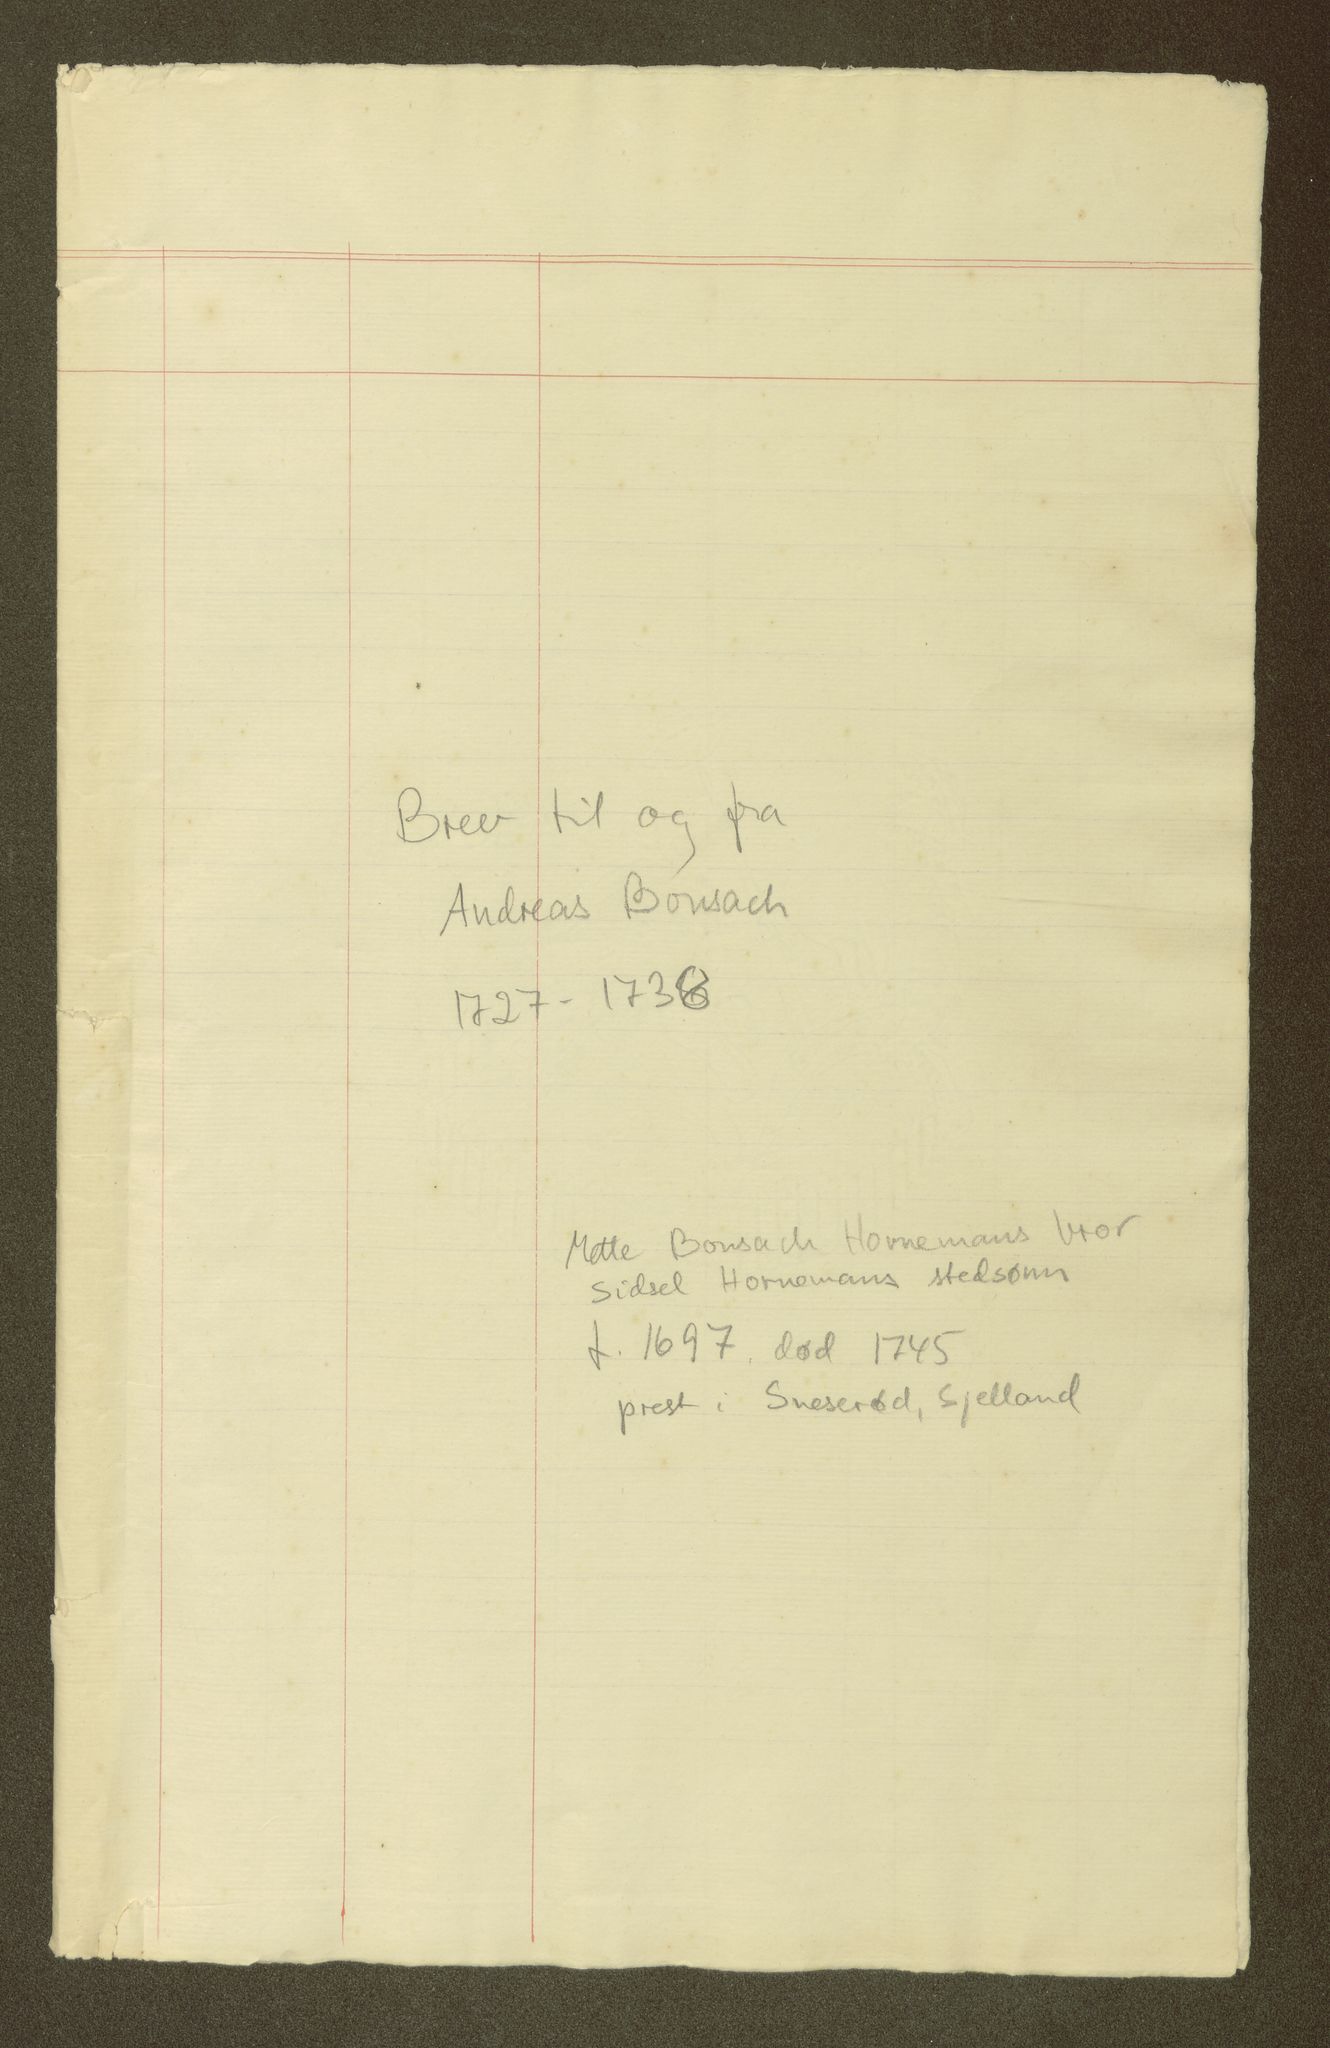 Brev til og fra
Andreas Bonsach
1727 - 1736
Mette Bonsach Hornemans bror
Sidsel Hornemans stedsønn
f. 1697. død 1745
prest i Sneserød, Sjelland